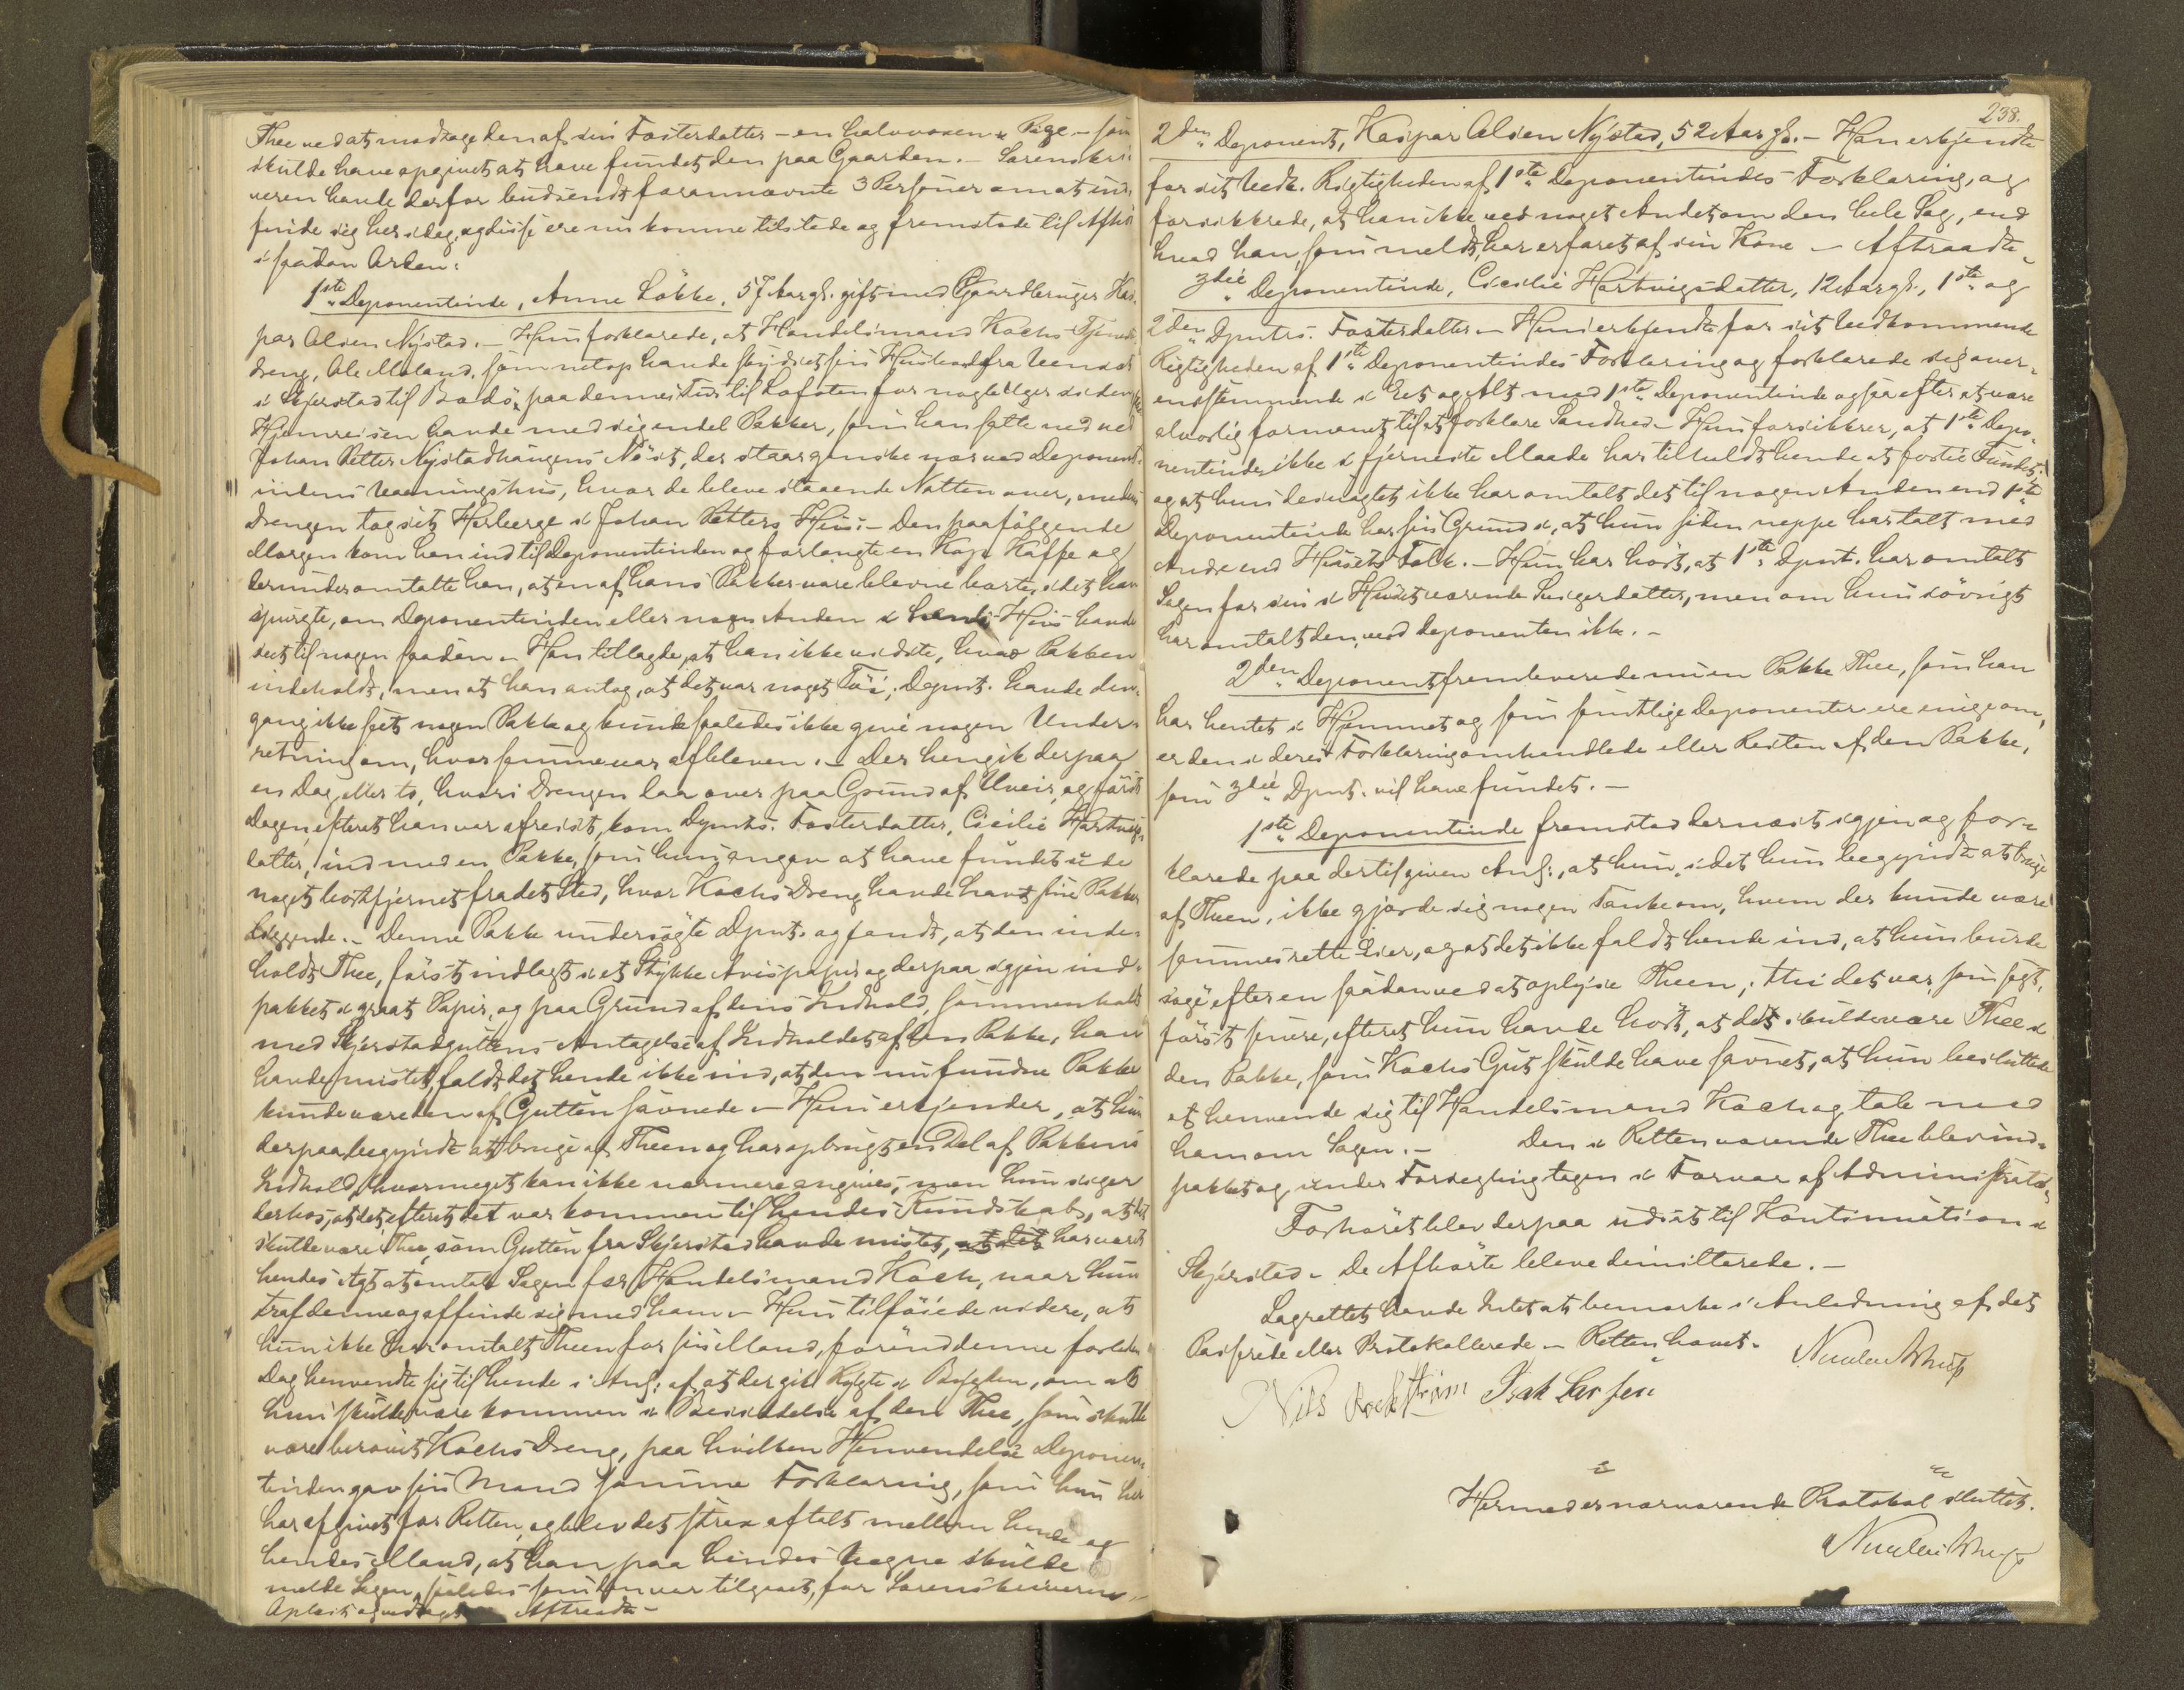 Thee ved at modtage den af sin Fosterdatter – en halvvoxen Pige – som
skulde have opgivet at have fundet den paa Gaarden. – Sorenskri-
veren havde derfor budsendt forannævnte 3 Personer om at ind-
finde sig her idag, og disse ere nu komne tilstede og fremstode til Afhør
i saadan Orden:
1ste Deponentinde, Anne Løkke, 57 Aar gl. gift med Gaardbruger Kas-
par Olsen Nystad. – Hun forklarede, at Handelsmand Kochs Tjeneste-
dreng, Ole Moland, som netop havde skydset sin Husbond fra Venset
i Skjerstad til Bodø, paa dennes Tur til Lofoten for nogle Uger siden, paa
Hjemreisen havde med sig endel Pakker, som han satte ned ved
Johan Petter Nystadhaugens Nøst, der staar ganske nær ved Deponent-
indens Vaaningshus, hvor de bleve staaende Natten over, medens
Drengen tog sit Herberge i Johan Petters Hus. – Den paafølgende
Morgen kom han ind til Deponentinden og forlangte en Kop Kaffe og
derunder omtalte han, at en af hans Pakker vare blevne borte, idet han
spurgte, om Deponentinden eller nogen Anden i hendes Hus havde
seet til nogen saadan. Han tillagde, at han ikke vidste, hvad Pakken
indeholdt, men at han antog, at det var noget Tøi; Dpnt. havde den-
gang ikke seet nogen Pakke og kunde saaledes ikke give nogen Under-
retning om, hvor samme var afbleven. – Der hengik derpaa
en Dag eller to, hvori Drengen laa over paa Grund af Uveir, og først
Dagen efteret han var afreist, kom Dpnts. Fosterdatter, Cecilie Hartvigs-
datter, ind med en Pakke, som hun angav at have fundet ude
noget bortfjernet fra det Sted, hvor Kochs Dreng havde havt sine Pakker
liggende. – Denne Pakke undersøgte Dpnt. og fandt, at den inde-
holdt Thee, først indlagt i et Stykke Avispapir og derpaa igjen ind-
pakket i graat Papir, og paa Grund af dens Indhold, sammenholdt
med Skjerstadguttens Antagelse af Indholdet af den Pakke, han
havde mistet, faldt det hende ikke ind, at den nu fundne Pakke
kunde være den af Gutten savnede – Hun erkjender, at hun
derpaa begyndte at bruge af Theen og har opbrugt en Del af Pakkens
Indhold, hvormeget kan ikke nærmere angives, men hun siger
derhos, at det, efteret det var kommen til hendes Kundskab, at det
skulde være Thee, som Gutten fra Skjerstad havde mistet, at det har været
hendes Agt at omtale Sagen for Handelsmand Koch, naar hun
traf denne og affinde sig med ham – Hun tilføiede videre, at
hun ikke har omtalt Theen for sin Mand, førend denne forleden
Dag henvendte sig til hende i Anl. af, at der gik Rygte i Bygden, om at
hun skulde være kommen i Besiddelse af den Thee, som skulde
være berøvet Kochs Dreng, paa hvilken Henvendelse Deponen-
tinden gav sin Mand samme Forklaring, som hun her
har afgivet for Retten, og blev det strax aftalt mellem hende og
hendes Mand, at han paa hendes Vegne skulde
melde Sagen, saaledes som den var tilgaaet, for Sorenskriveren. –
Oplæst og vedtaget. Aftraadte –
238.
2den Deponent, Kaspar Olsen Nystad, 52 Aar gl. – Han erkjendte
for sit Vedk. Rigtigheden af 1ste Deponentindes Forklaring, og
forsikkrede, at han ikke ved noget Andet om den hele Sag, end
hvad han, som meldt, har erfaret af sin Kone – Aftraadte.
3die Deponentinde, Cecilie Hartvigsdatter, 12 Aar gl., 1ste og
2den Dpnts. Fosterdatter – Hun erkjendte for sit Vedkommende
Rigtigheden af 1ste Deponentindes Forklaring og forklarede sig over-
ensstemmende i Et og Alt med 1ste Deponentinde ogsaa efter at være
alvorlig formanet til at forklare Sandhed – Hun forsikkrer, at 1ste Depo-
nentinde ikke i fjerneste Maade har tilholdt hende at fortie Fundet
og at hun desuagtet ikke har omtalt det til nogen Anden end 1ste
Deponentinde har sin Grund i, at hun siden neppe har talt med
Andre end Husets Folk. – Hun har hørt, at 1ste Dpnt. har omtalt
Sagen for sin i Huset værende Svigerdatter, men om hun iøvrigt
har omtalt den, ved Deponenten ikke. –
2den Deponent fremleverede nu en Pakke Thee, som han
har hentet i Hjemmet og som samtlige Deponenter ere enige om,
er den i deres Forklaring omhandlede eller Resten af den Pakke,
som 3die Dpnt. vil have fundet. –
1ste Deponentinde fremstod dernæst igjen og for-
klarede paa dertil given Anl., at hun, idet hun begyndte at bruge
af Theen, ikke gjorde sig nogen Tanke om, hvem der kunde være
sammes rette Eier, og at det ikke faldt hende ind, at hun burde
søge efter en saadan ved at oplyse Theen; thi det var, som sagt,
først senere, efteret hun havde hørt, at det skulde være Thee i
den Pakke, som Kochs Gut skulde have savnet, at hun besluttede
at henvende sig til Handelsmand Koch og tale med
ham om Sagen. – Den i Retten værende Thee blev ind-
pakket og under Forsegling tagen i Forvar af Administrator.
Forhøret blev derpaa udsat til Kontinuation i
Skjerstad. De Afhørte bleve dimitterede. –
Lagrettet havde Intet at bemærke i Anledning af det
Passerede eller Protokollerede. – Retten hævet.
Nils Rockstrøm Isak Larsen
Hermed er nærværende Protokol sluttet.